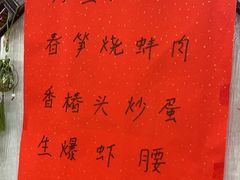 春笋烧蚌肉
香椿头炒蛋
生爆虾腰